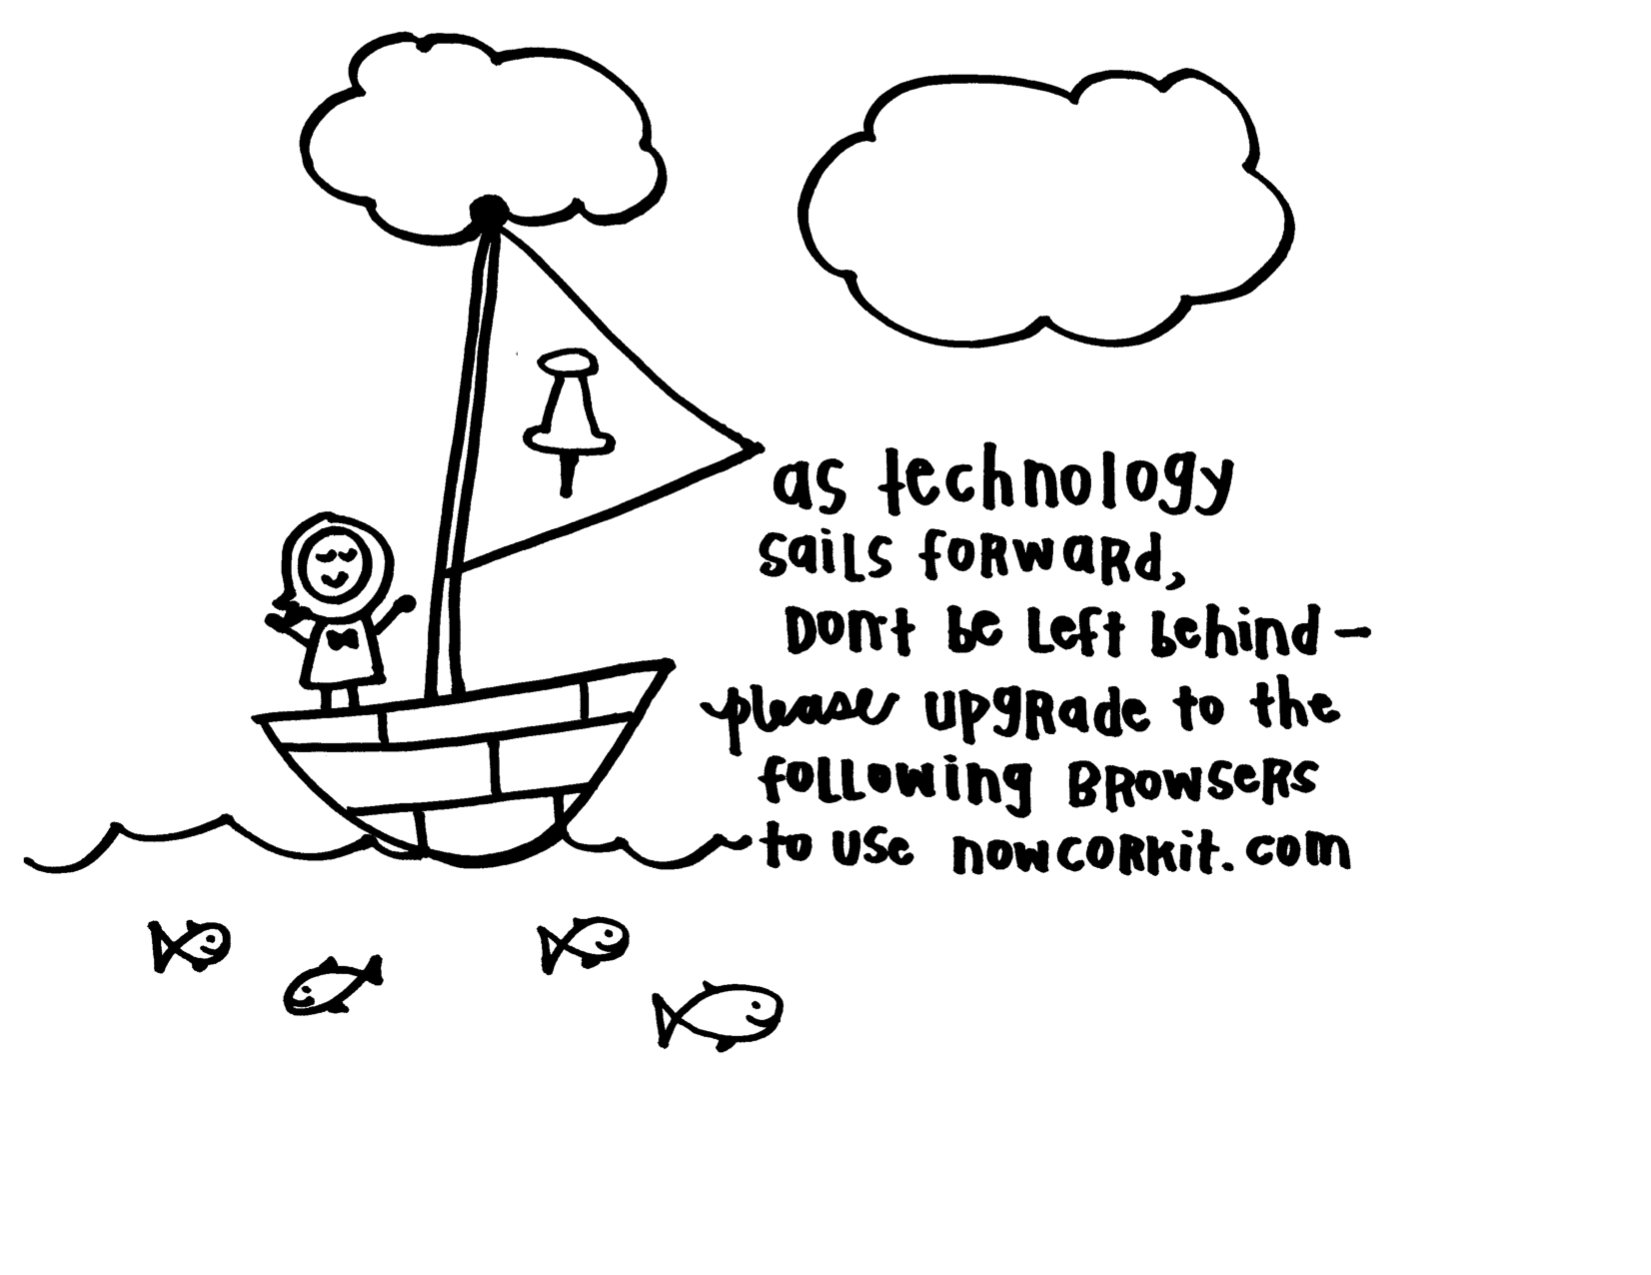 as technology
sails forward,
Don't be left behind -
please upgrade to the
following BROWSERS
to use nowcorkit.com